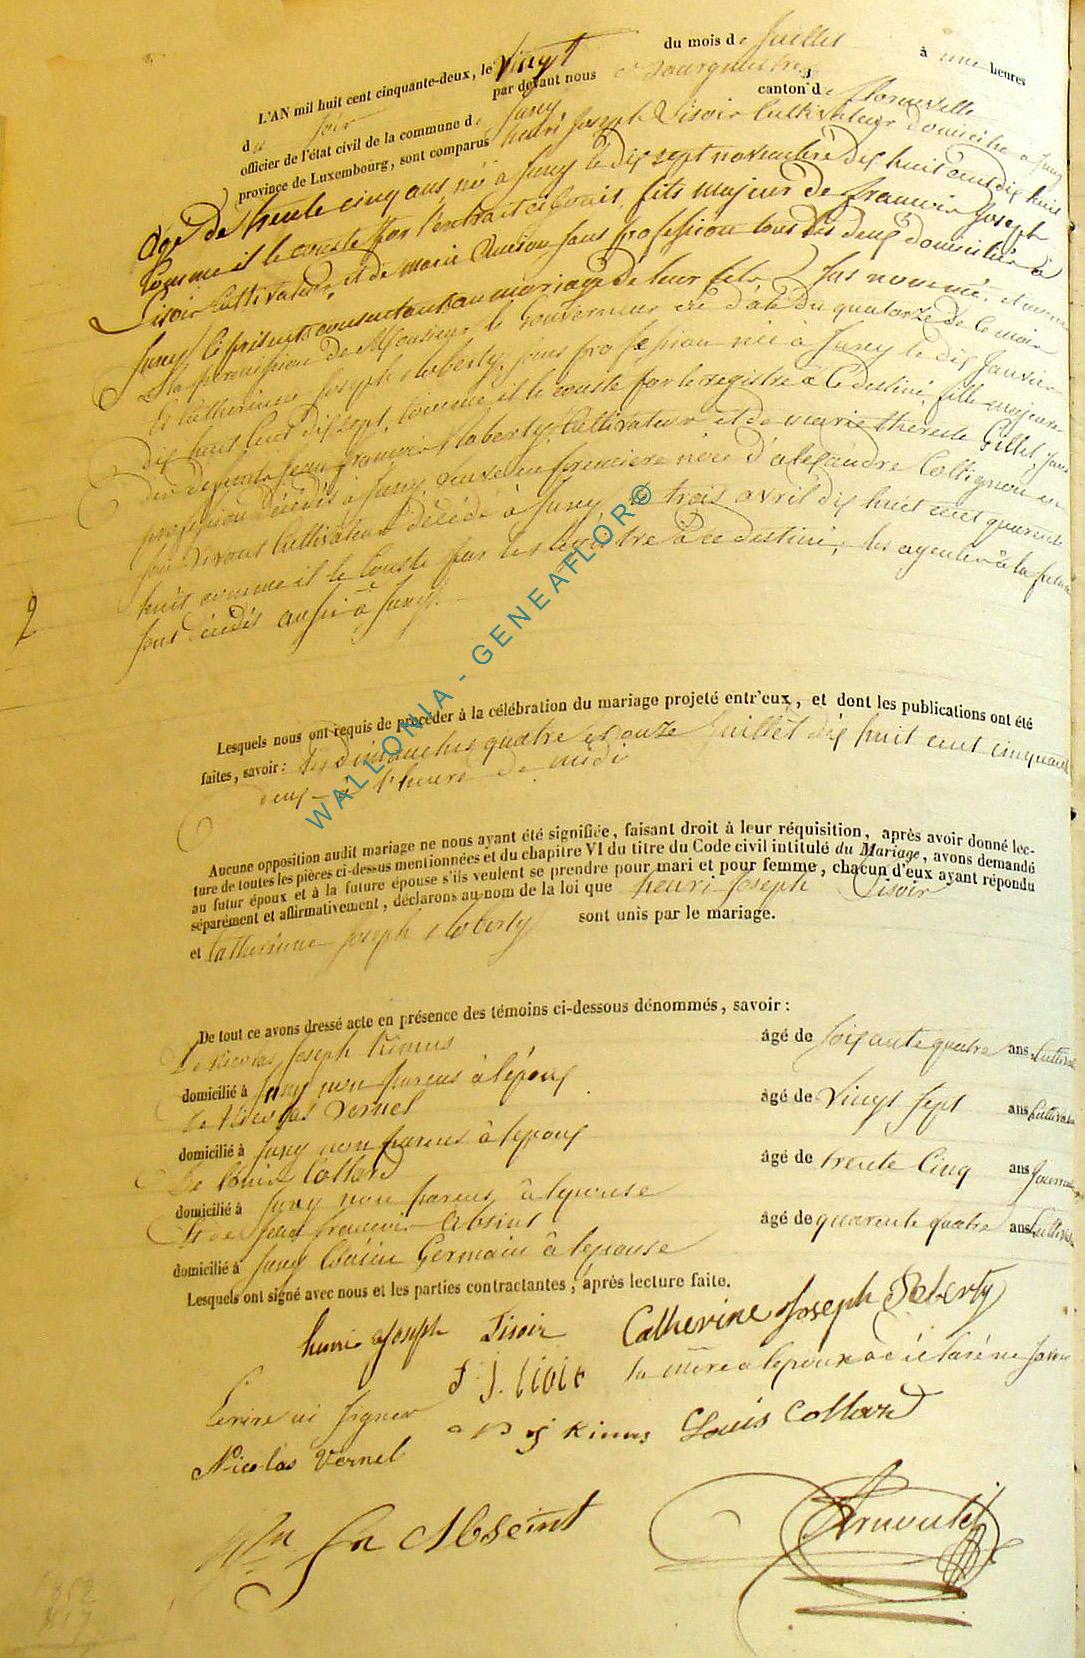 L'AN mil huit cent cinquante-deux, le Vingt du mois de Juillet à une heures
du soir par devant nous Bourgmestre
officier de l'état civil de la commune de Juny canton de florenville
province de Luxembourg, sont comparus henri Joseph Lisoir Cultivateur domicilié à Juny
âgé de trente cinq ans né à Juny le dix sept novembre dix huit cent dix huit
comme il le conste par l'extrait ci joint, fils majeur de françois Joseph
Lisoir Cultivateur, et de marie sans profession tous les deux domiciliés à
Juny ici présents consentant au mariage de leur fils
la permission de Monsieur le Gouverneur en date du quatorze de ce mois
Et Catherine Joseph Roberty, sans profession née à Juny le dix Janvier
dix huit cent dix sept, comme il le conste par le registre à ce destiné, fille majeure
des défunts Jean françois Roberty Cultivateur et de marie thérèse Gillet, sans
profession décédés à Juny, veuve en première noce d'alexandre Collignon en
son vivant Cultivateur décédé à Juny le trois avril dix huit cent quarante
huit comme il le conste par les registre à ce destiné, les ayeulx à la future
sont décédés aussi à Juny.
WALLONIA - GENEAFLOR©
Lesquels nous ont requis de procéder à la célébration du mariage projeté entr'eux, et dont les publications ont été
faites, savoir: les dimanches quatre et onze Juillet dix huit cent cinquante
deux à l'heure de midi
Aucune opposition audit mariage ne nous ayant été signifiée, faisant droit à leur réquisition, après avoir donné lec-
ture de toutes les pièces ci-dessus mentionnées et du chapitre VI du titre du Code civil intitulé du Mariage, avons demandé
au futur époux et à la future épouse s'ils veulent se prendre pour mari et pour femme, chacun d'eux ayant répondu
séparément et affirmativement, déclarons au nom de la loi que henri Joseph Lisoir
et Catherinne Joseph Roberty sont unis par le mariage.
De tout ce avons dressé acte en présence des témoins ci-dessous dénommés, savoir:
De Nicolas Joseph Kimus âgé de soixante quatre ans Cultivat
domicilié à Juny non parens à l'époux
De Nicolas Vernel âgé de Vingt sept ans Cultivat
domicilié à Juny non parens à l'époux
De Louis Collard âgé de trente Cinq ans Journ
domicilié à Juny non parens à l'épouse
Et de Jean françois Absint âgé de quarente quatre ans Cultiva
domicilié à Juny Cousin Germain à l'épouse
Lesquels ont signé avec nous et les parties contractantes, après lecture faite.
henri Joseph Lisoir Catherine Joseph Roberty
f. J. lisoir la mère a l'époux a déclaré ne savoir
Ecrire ni signer
N J Kimus Louis Collard
Nicolas Vernel
Abseint